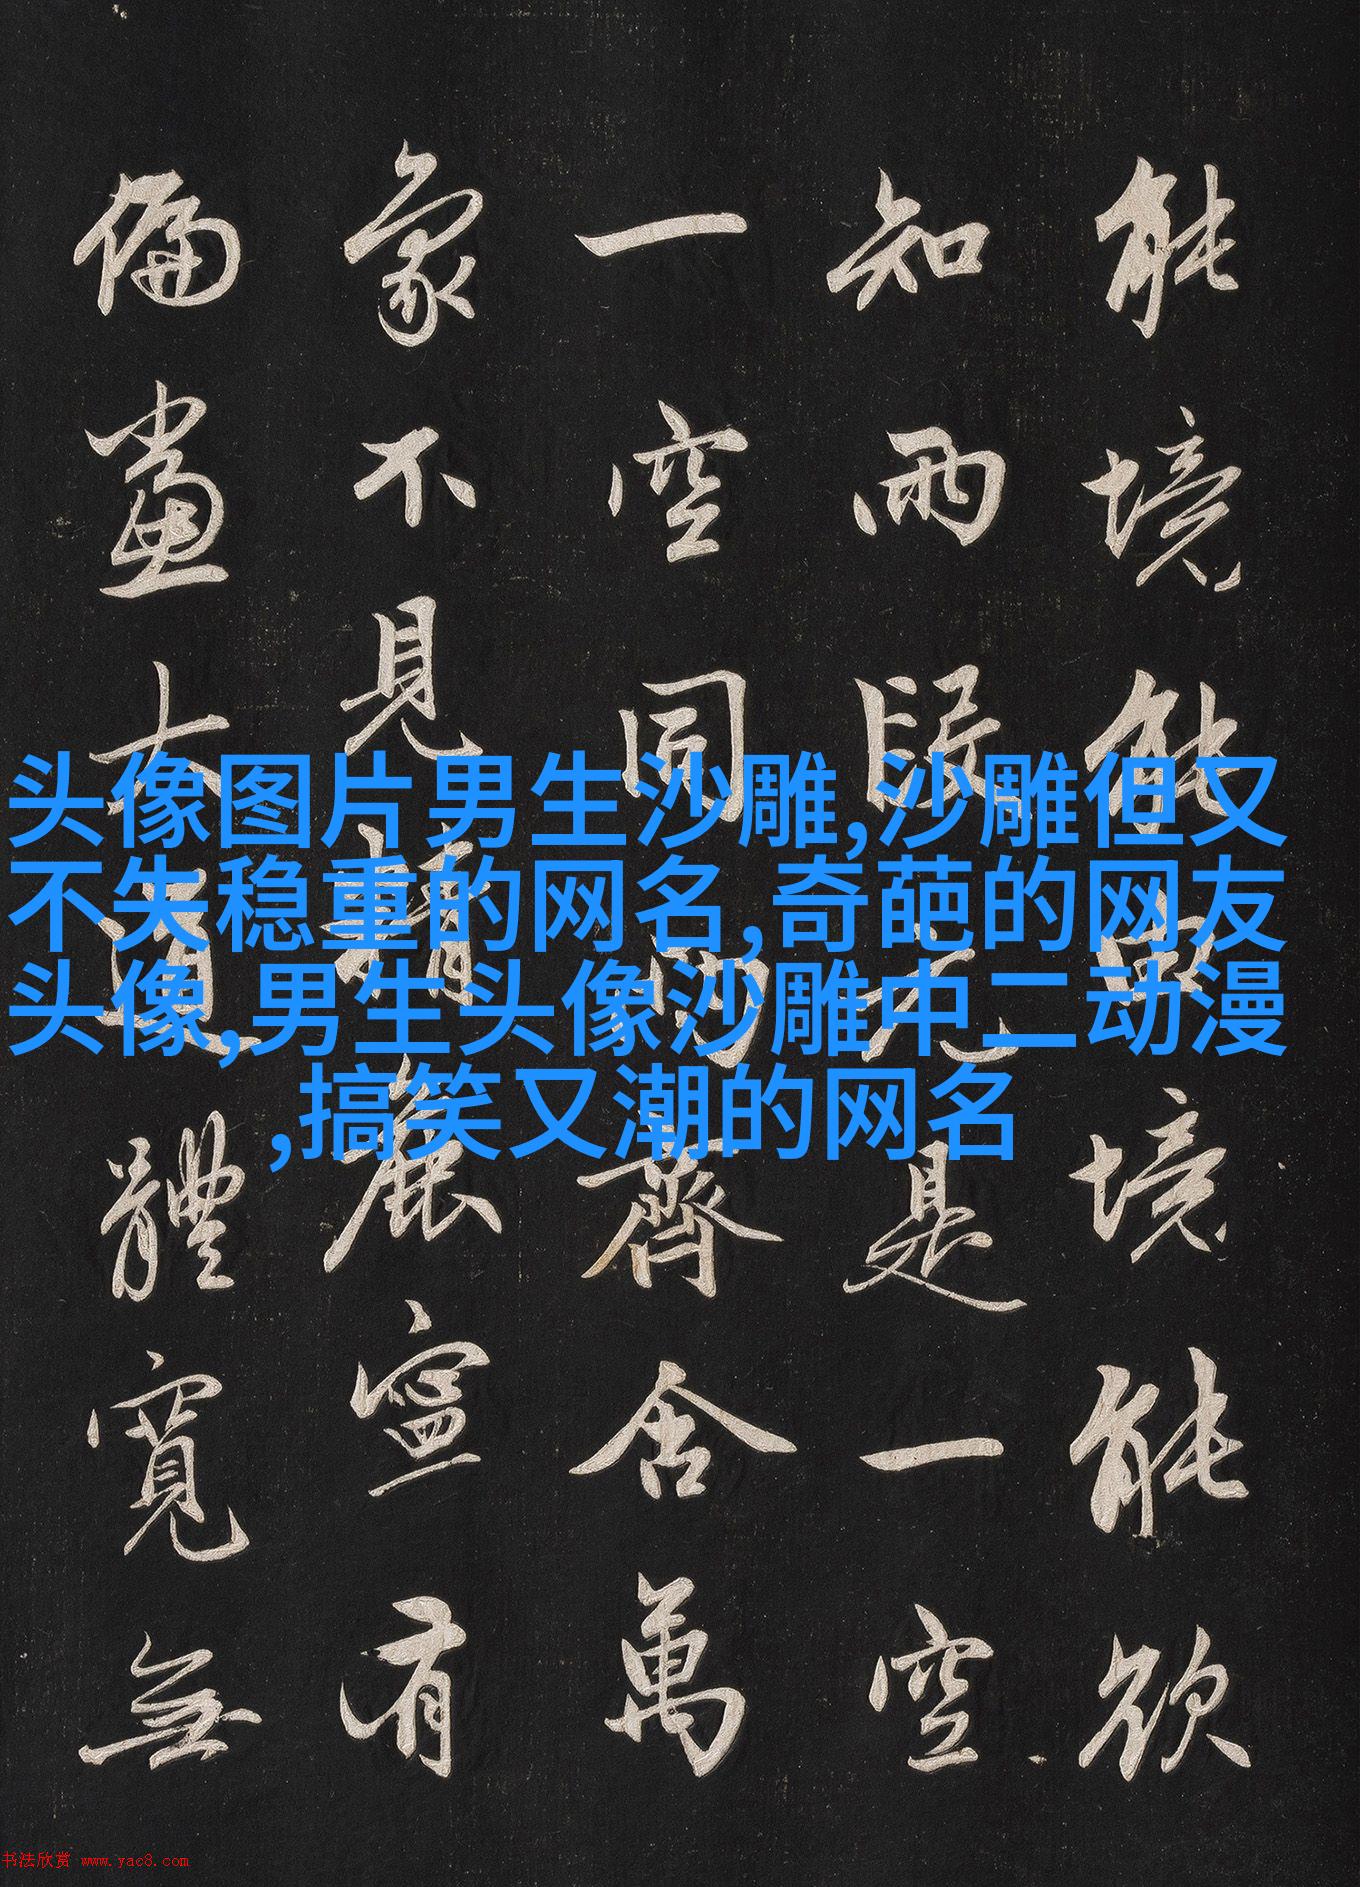 能境能由境能欲
知兩段元是一空
一空同兩齊含萬
象不見精麁寧有
偏黨大道體寬無
头像图片男生沙雕,沙雕但又
不失稳重的网名,奇葩的网友
头像,男生头像沙雕中二动漫
,搞笑又潮的网名
书法欣赏 www.yac8.com